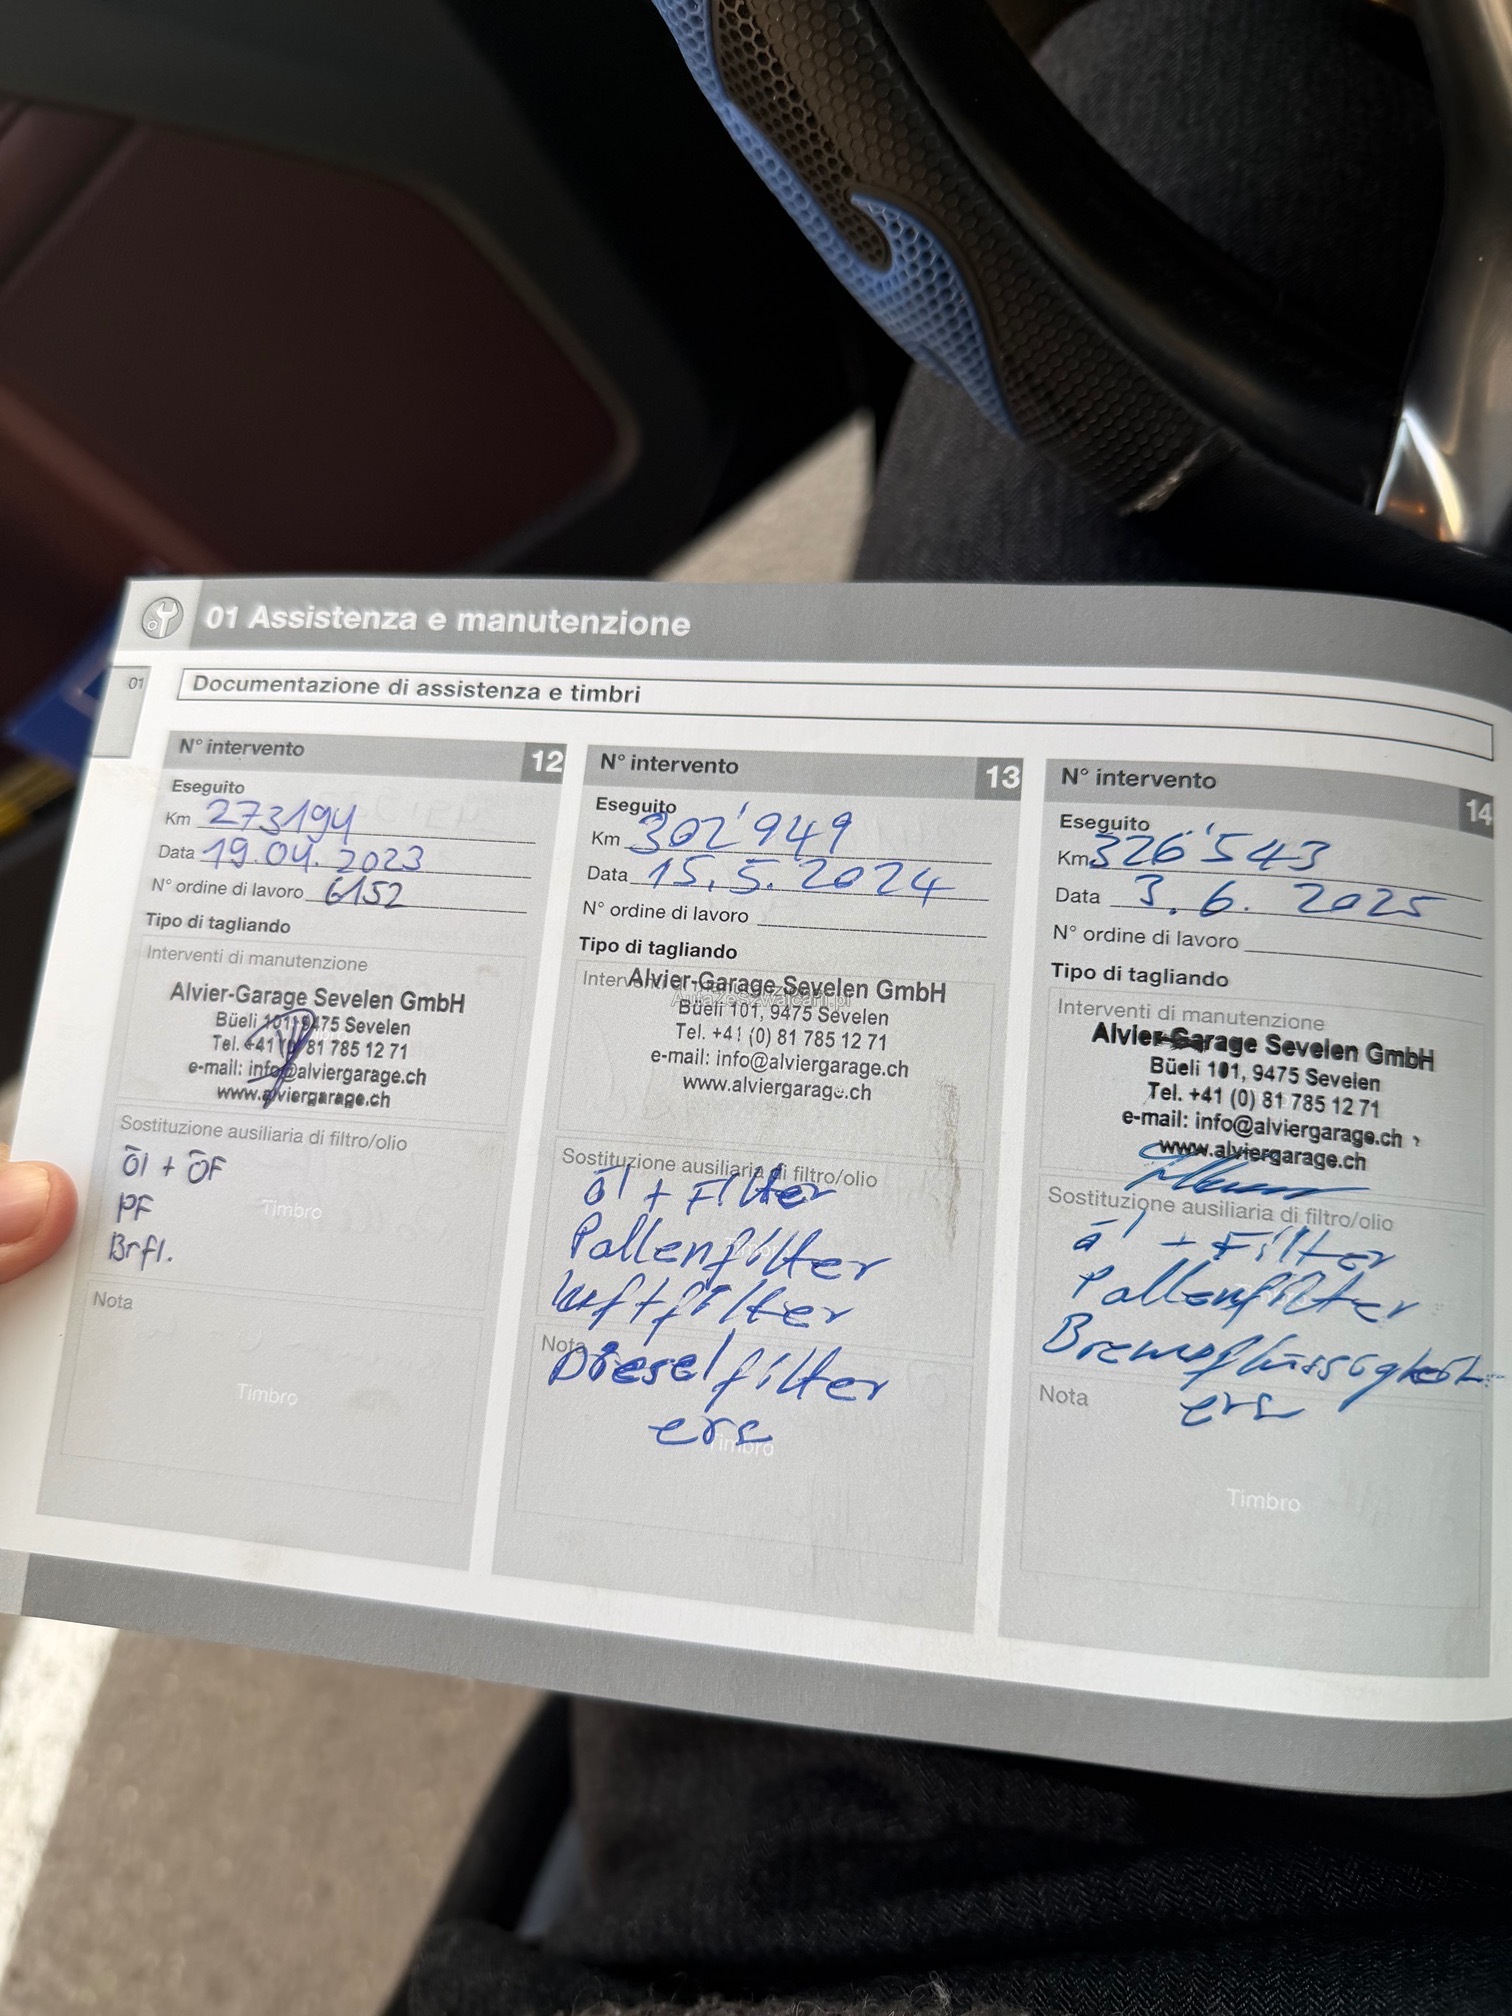 01 Assistenza e manutenzione
01
Documentazione di assistenza e timbri
N° intervento 12
Eseguito
Km 273194
Data 19.04.2023
N° ordine di lavoro 6152
Tipo di tagliando
Interventi di manutenzione
Alvier-Garage Sevelen GmbH
Büeli 101, 9475 Sevelen
Tel. +41 (0) 81 785 12 71
e-mail: info@alviergarage.ch
www.alviergarage.ch
Sostituzione ausiliaria di filtro/olio
Öl + ÖF
PF
Brfl.
Timbro
Nota
Timbro
N° intervento 13
Eseguito
Km 302'949
Data 15.5.2024
N° ordine di lavoro
Tipo di tagliando
Alvier-Garage Sevelen GmbH
AutazeSzwajcarii.pl
Büeli 101, 9475 Sevelen
Tel. +41 (0) 81 785 12 71
e-mail: info@alviergarage.ch
www.alviergarage.ch
Sostituzione ausiliaria di filtro/olio
Öl + Filter
Pollenfilter
Luftfilter
Nota
Dieselfilter
ers
Timbro
N° intervento 14
Eseguito
Km 326'543
Data 3.6.2025
N° ordine di lavoro
Tipo di tagliando
Interventi di manutenzione
Alvier-Garage Sevelen GmbH
Büeli 101, 9475 Sevelen
Tel. +41 (0) 81 785 12 71
e-mail: info@alviergarage.ch
www.alviergarage.ch
Sostituzione ausiliaria di filtro/olio
Öl + Filter
Pollenfilter
Bremsflüssigkeit
Nota
ers
Timbro